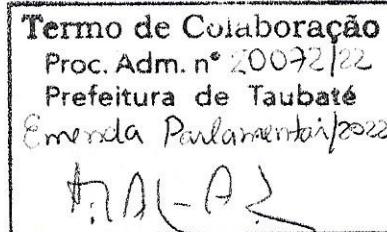 Termo de Colaboração
Proc. Adm. nº 20072/22
Prefeitura de Taubaté
Emenda Parlamentar/2022